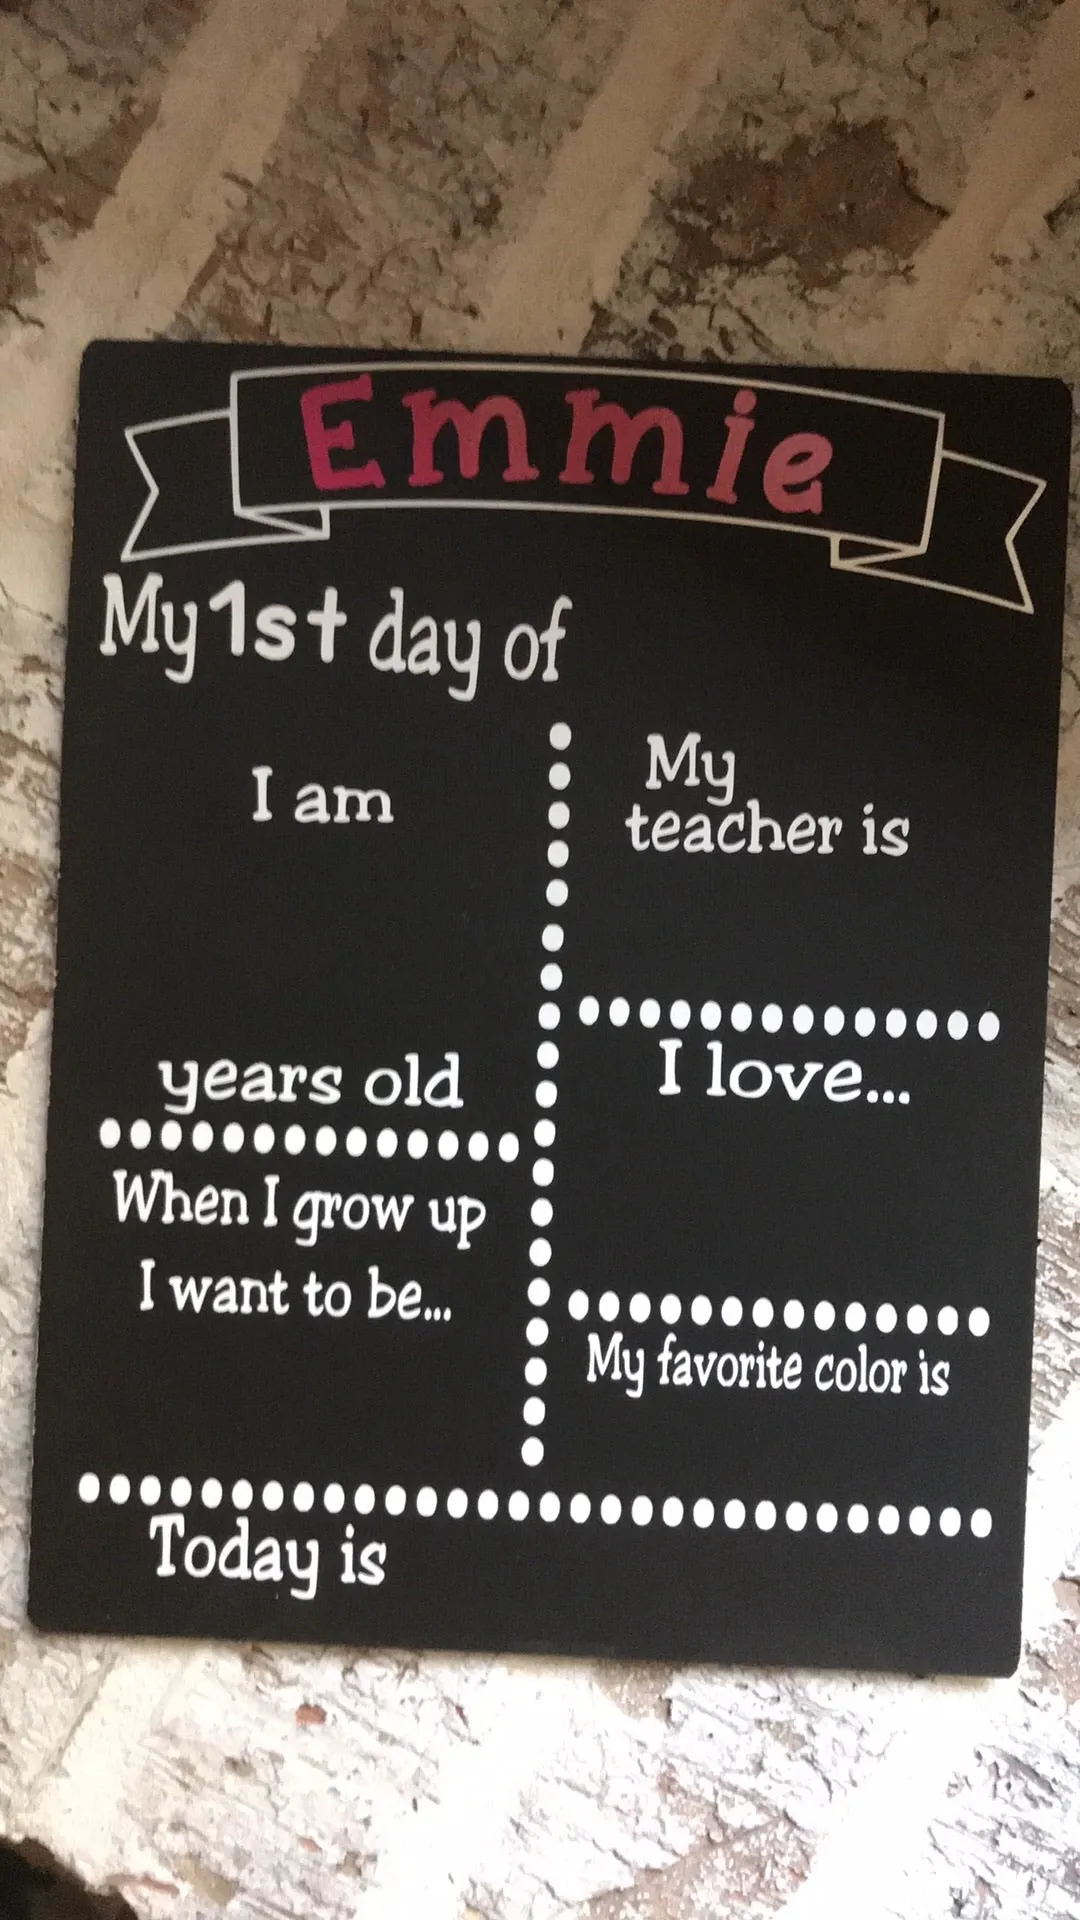 Emmie
My 1st day of
I am
years old
When I grow up
I want to be...
My
teacher is
I love...
My favorite color is
Today is